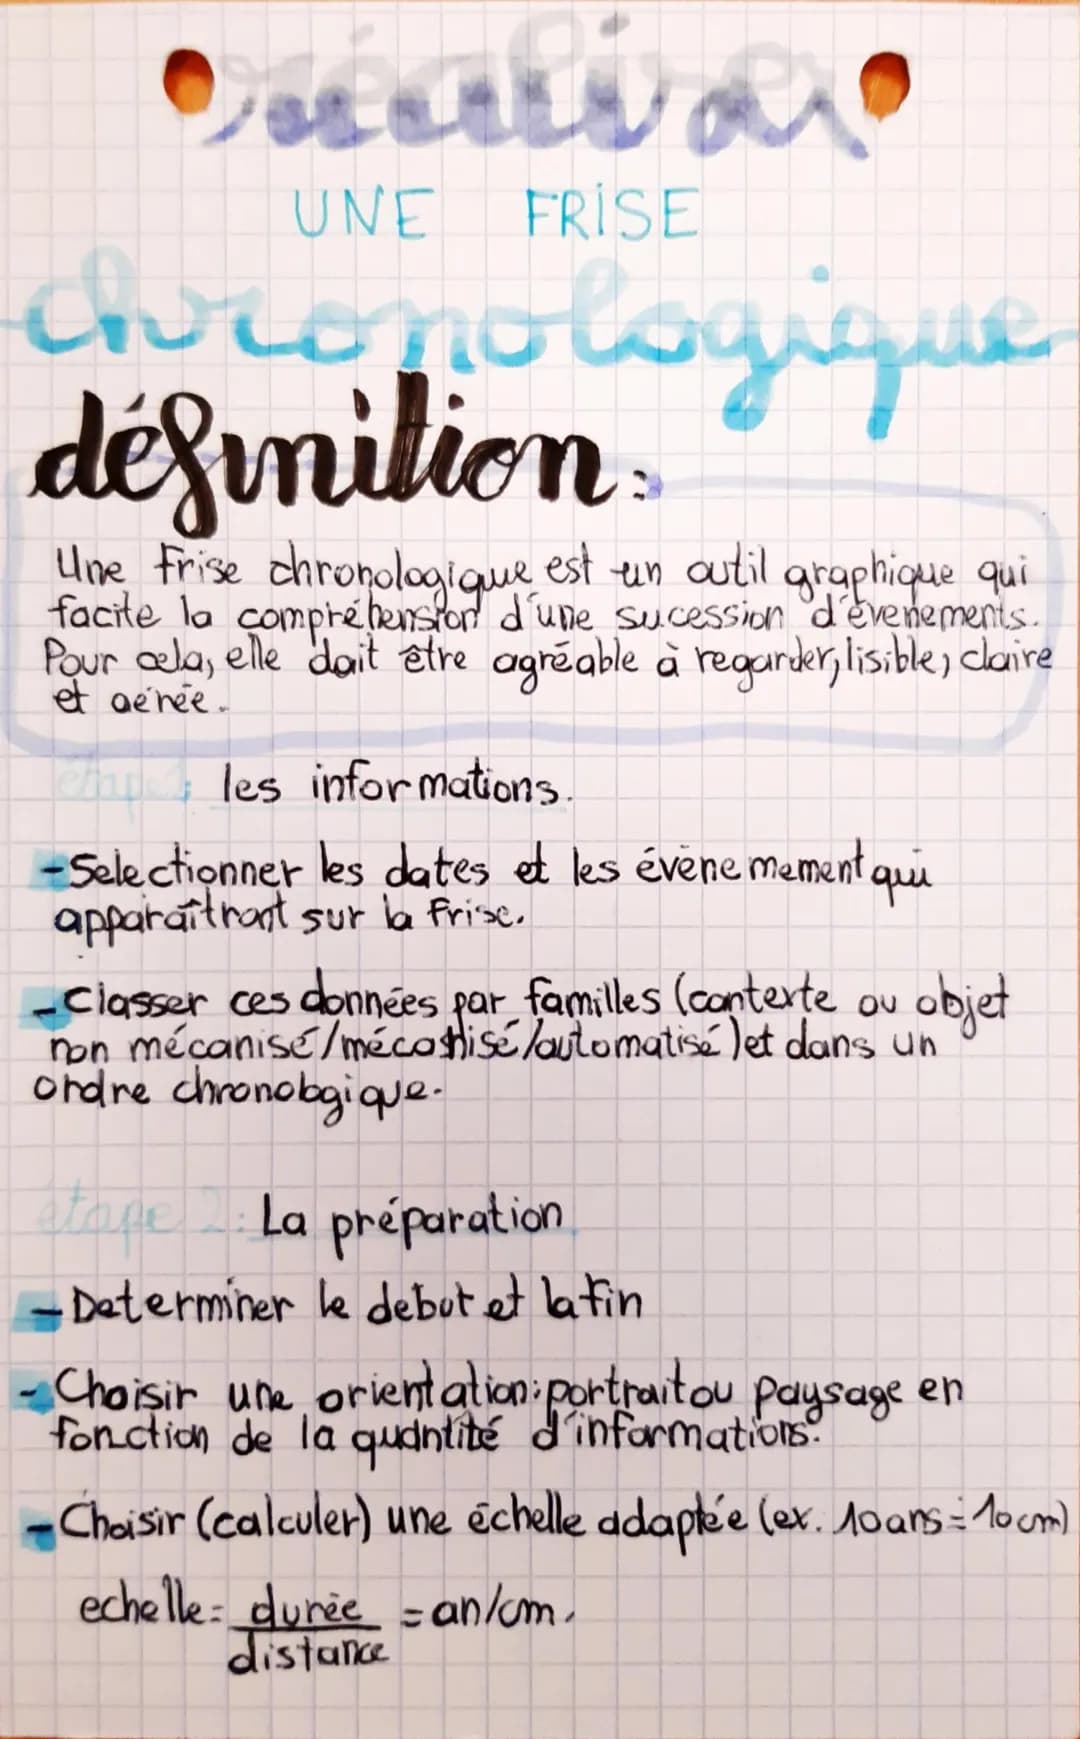 réaliser
UNE FRISE
chronologique
définition:
Une frise chronologique est un outil graphique qui
facite la compréhension d'une sucession d'évenements.
Pour cela, elle doit être agréable à regarder, lisible, claire
et aérée.
étape 1: les informations.
- Selectionner les dates et les évènemement qui
apparaîtront sur la frise.
- Classer ces données par familles (contexte ou objet
non mécanisé/mécanisé/automatisé) et dans un
ordre chronologique.
étape 2: La préparation
- Determiner le debut et la fin
- Choisir une orientation: portrait ou paysage en
fonction de la quantité d'informations.
- Choisir (calculer) une échelle adaptée (ex. 10 ans = 10 cm)
echelle = durée = an/cm.
distance